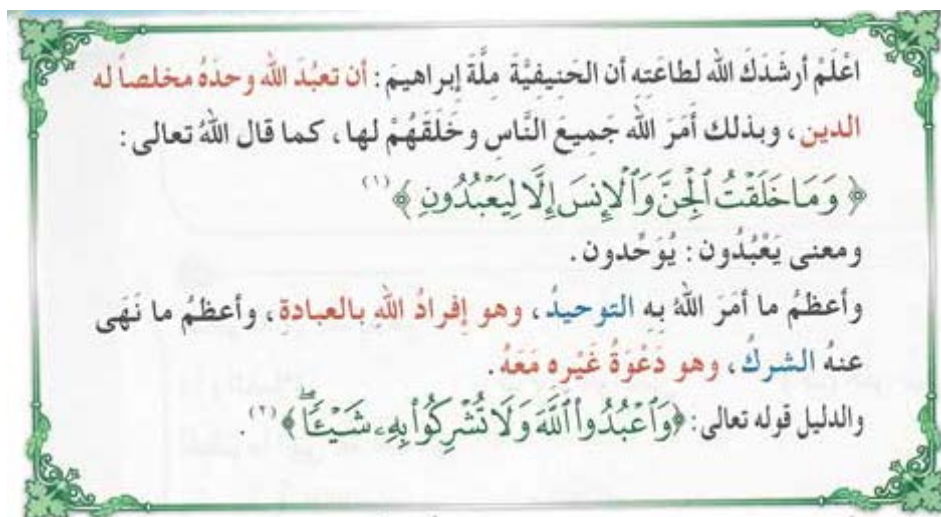 اعْلَمْ أرشَدَكَ الله لطاعَتِه أن الحَنيفيَّةَ ملَّةَ إبراهيمَ: أن تعبُدَ الله وحدَهُ مخلصاً له
الدين، وبذلك أَمَرَ الله جَميعَ النَّاسِ وخَلَقَهُمْ لها، كما قال اللهُ تعالى:
﴿ وَمَا خَلَقْتُ ٱلْجِنَّ وَٱلْإِنسَ إِلَّا لِيَعْبُدُونِ ﴾ (١)
ومعنى يَعْبُدُون: يُوَحِّدون.
وأعظمُ ما أمَرَ اللهُ به التوحيدُ، وهو إفرادُ اللهِ بالعبادةِ، وأعظمُ ما نَهَى
عنهُ الشركُ، وهو دَعْوَةُ غَيْرِه مَعَهُ.
والدليل قوله تعالى: ﴿وَٱعْبُدُوا۟ ٱللَّهَ وَلَا تُشْرِكُوا۟ بِهِۦ شَيْـًٔا ۖ﴾ (٢).